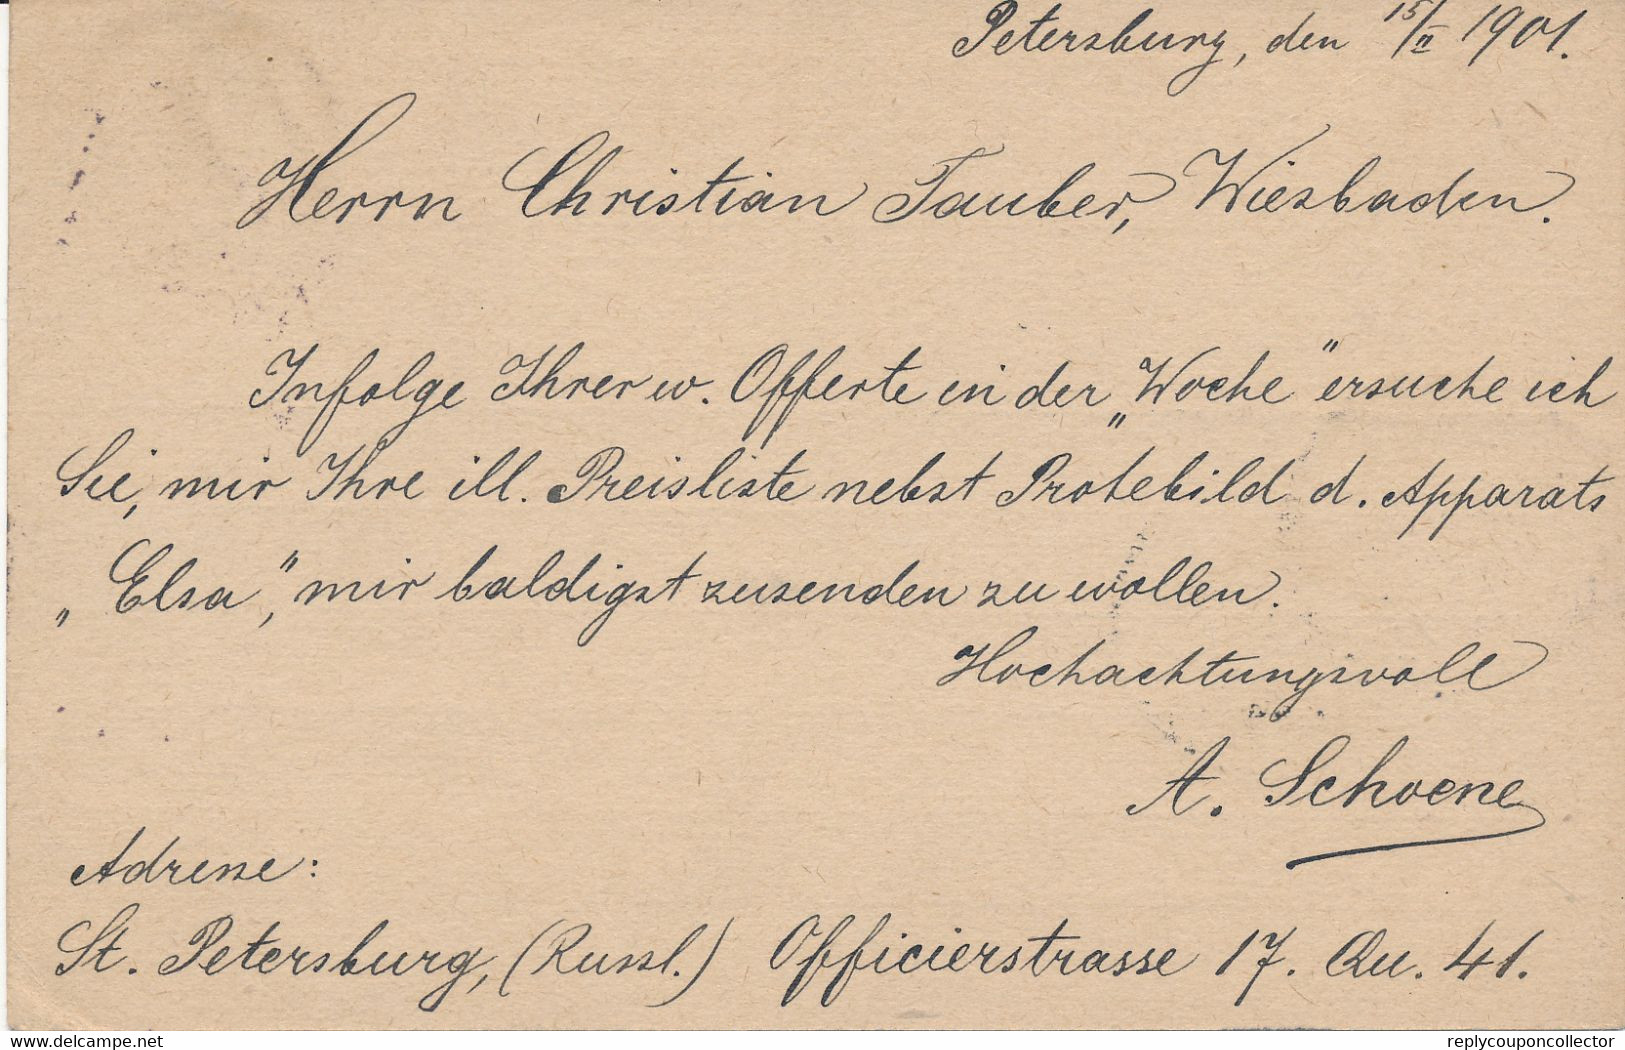 Petersburg, den 15/II 1901.
Herrn Christian Tauber, Wiesbaden.
Infolge Ihrer w. Offerte in der „Woche" ersuche ich
Sie, mir Ihre ill. Preisliste nebst Probebild d. Apparats
„Elsa", mir baldigst zusenden zu wollen.
Hochachtungsvoll
A. Schoene
Adresse:
St. Petersburg, (Russl.) Officierstrasse 17. Qu. 41.
www.delcampe.net
replycouponcollector